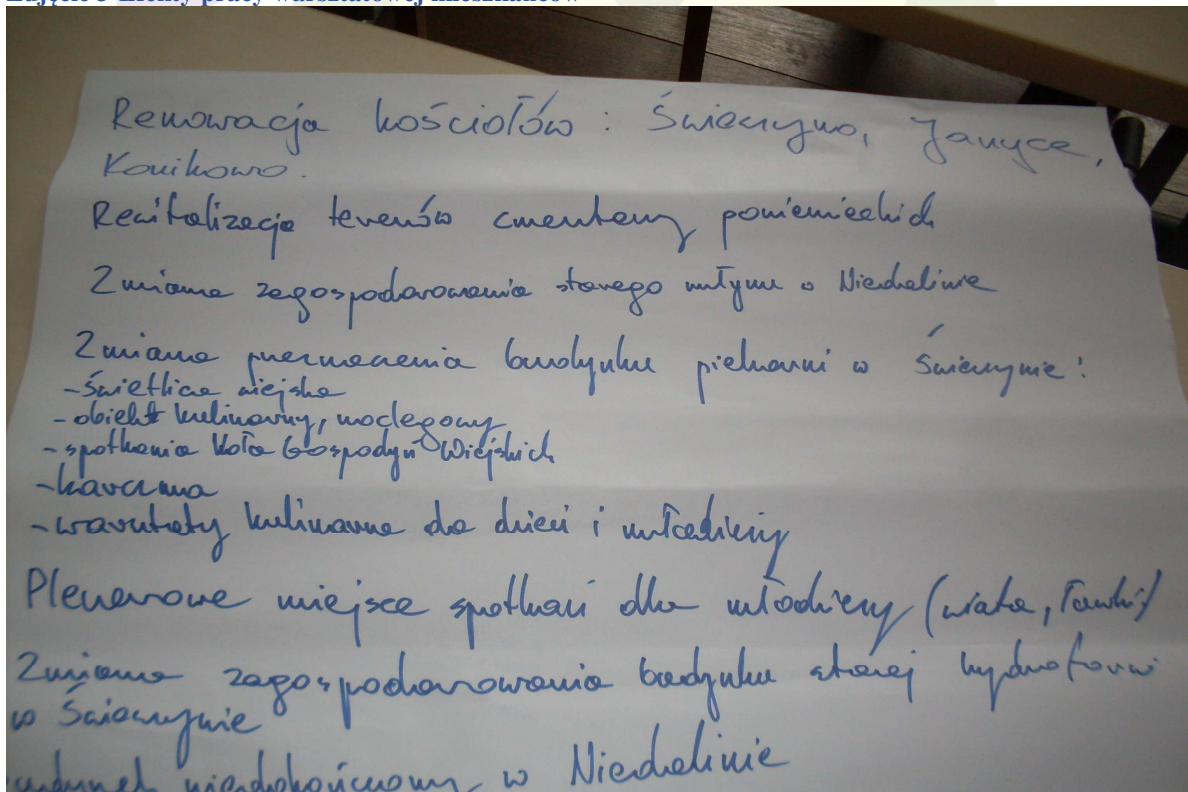 Renowacja kościołów: Świeszyno, Jarzyce,
Konikowo.
Rewitalizacja terenów cmentarzy poniemieckich
Zmiana zagospodarowania starego młyna w Niedalinie
Zmiana przeznaczenia budynku piekarni w Świeszynie:
-świetlica wiejska
- obiekt kulinarny, noclegowy
- spotkania Koła Gospodyń Wiejskich
- karczma
- warsztaty kulinarne dla dzieci i młodzieży
Plenerowe miejsce spotkań dla młodzieży (wiata, ławki)
Zmiana zagospodarowania budynku starej hydroforni
w Świeszynie
niedokończony w Niedalinie